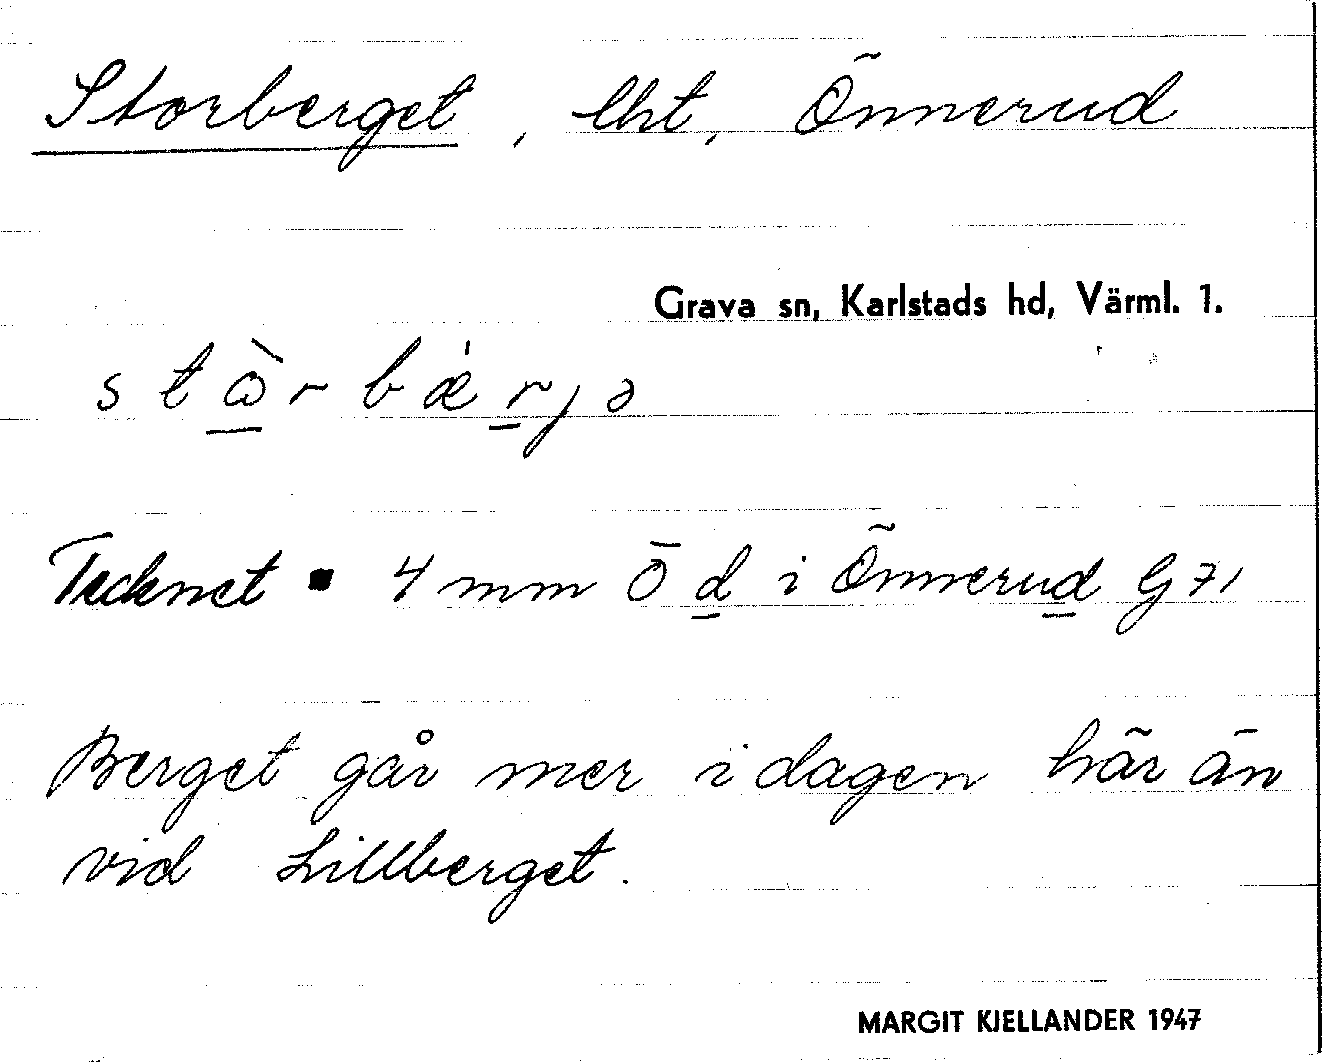 Storberget, lht, Önnerud
Grava sn, Karlstads hd, Värml. 1.
stὼ̲r bæ̍r̲jə
Tecknet ▪ 4 mm Ö d̲ i Önneru̲d G 71
Berget går mer i dagen här än
vid Lillberget.
MARGIT KJELLANDER 1947